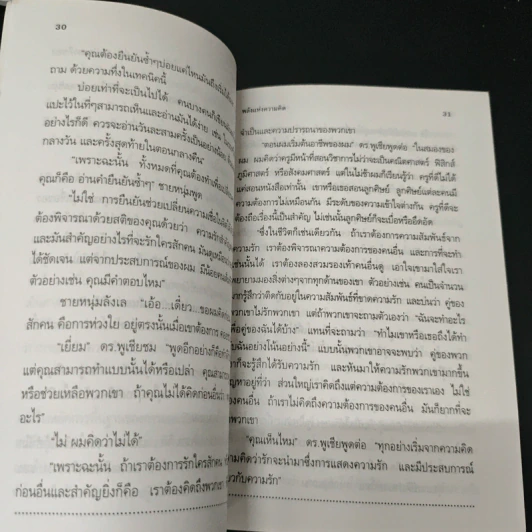 30
"คุณต้องยืนยันซ้ำๆบ่อยแค่ไหนมันถึงจะได้
ถาม ด้วยความทึ่งในเทคนิคนี้
บ่อยเท่าที่จะเป็นไปได้ คนบางคนก็เขียน
แปะไว้ในที่ๆสามารถเห็นและอ่านมันได้ง่าย เช่น
อย่างไรก็ดี ควรจะอ่านวันละสามครั้งเป็นอย่างน้อย
กลางวัน และครั้งสุดท้ายในตอนกลางคืน"
"เพราะฉะนั้น ทั้งหมดที่คุณต้องทำเพื่อ
คุณก็คือ อ่านคำยืนยันซ้ำๆ" ชายหนุ่มพูด
"ไม่ใช่ การยืนยันช่วยเปลี่ยนความเชื่อใน
ต้องพิจารณาด้วยสติของคุณด้วยว่า ความรัก
และมันสำคัญอย่างไรที่จะรักใครสักคน มันดูเหมือน
ได้ชัดเจน แต่จากประสบการณ์ของผม มีน้อยคน
ตัวอย่างเช่น คุณมีคำตอบไหม"
ชายหนุ่มลังเล "เอ้อ...เดี๋ยว ขอผมคิด
สักคน คือการห่วงใย อยู่ตรงนั้นเมื่อเขาต้องการ
"เยี่ยม" ดร.พูเชียชม "พูดอีกอย่างก็คือ
แต่คุณสามารถทำแบบนั้นได้หรือเปล่า คุณสามา
หรือช่วยเหลือพวกเขา ถ้าคุณไม่ได้คิดก่อนว่า
อะไร"
"ไม่ ผมคิดว่าไม่ได้"
"เพราะฉะนั้น ถ้าเราต้องการรักใครสักคน
ก่อนอื่นและสำคัญยิ่งก็คือ เราต้องคิดถึงพวกเขา
พลังแห่งความคิด
31
จำเป็นและความปรารถนาของพวกเขา
"ตอนผมเริ่มต้นอาชีพของผม" ดร.พูเชียพูดต่อ "ในสมองของ
ผม ผมคิดว่าครูมีหน้าที่สอนวิชาการไม่ว่าจะเป็นคณิตศาสตร์ ฟิสิกส์
ภูมิศาสตร์ หรือสังคมศาสตร์ แต่ในไม่ช้าผมก็เรียนรู้ว่า ครูที่ดีไม่ได้
แค่สอนหนังสือเท่านั้น เขาหรือเธอสอนลูกศิษย์ ลูกศิษย์แต่ละคนมี
ความต้องการไม่เหมือนกัน มีระดับของความเข้าใจต่างกัน ครูที่ดีจะ
ต้องถือเรื่องนี้เป็นสำคัญ ไม่เช่นนั้นลูกศิษย์ก็จะเบื่อหรืออึดอัด
"ซึ่งในชีวิตก็เช่นเดียวกัน ถ้าเราต้องการความสัมพันธ์จาก
ความรัก เราต้องพิจารณาความต้องการของคนอื่น และการที่จะทำ
เช่นนั้นได้ เราต้องลองสวมรองเท้าคนอื่นดู เอาใจเขามาใส่ใจเรา
พยายามมองสิ่งต่างๆจากทุกด้านของเขา ตัวอย่างเช่น คนเป็นจำนวน
มากรู้สึกว่าติดกับอยู่ในความสัมพันธ์ที่ขาดความรัก และบ่นว่า คู่ของ
พวกเขาไม่รักพวกเขา แต่ถ้าพวกเขาจะถามตัวเองว่า "ฉันจะทำอะไร
เพื่อคู่ของฉันได้บ้าง" แทนที่จะถามว่า "ทำไมเขาหรือเธอถึงได้ทำ
กับฉันอย่างโน้นอย่างนี้" แบบนั้นพวกเขาอาจจะพบว่า คู่ของพวก
เขาก็จะรู้สึกได้รับความรัก และหันมาให้ความรักพวกเขามากขึ้น
ปัญหาอยู่ที่ว่า ส่วนใหญ่เราคิดถึงแต่ความต้องการของเราเอง ไม่ใช่
ของคนอื่น ถ้าเราไม่คิดถึงความต้องการของคนอื่น มันก็ยากที่จะ
พวกเขา
"คุณเห็นไหม" ดร.พูเชียพูดต่อ "ทุกอย่างเริ่มจากความคิด
ความคิดว่ารักจะนำมาซึ่งการแสดงความรัก และมีประสบการณ์
เกี่ยวกับความรัก"